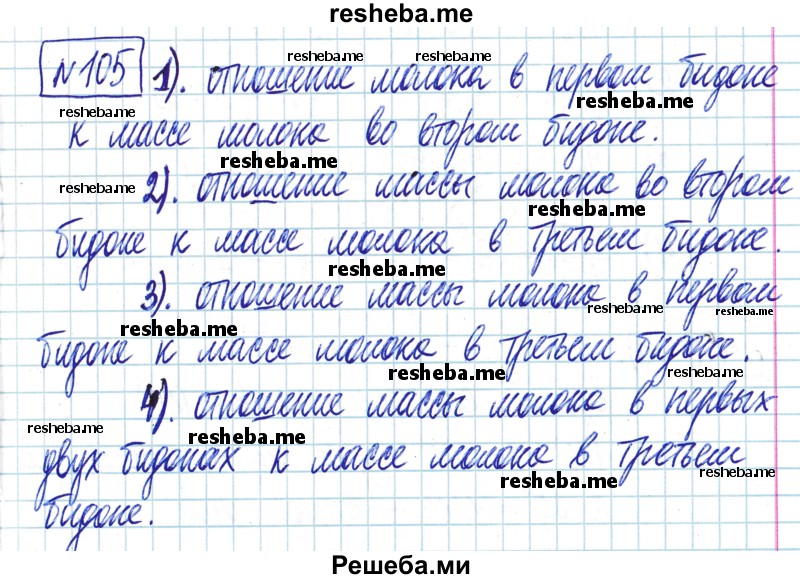 resheba.me
№105 1). отношение молока в первом бидоне
к массе молока во втором бидоне.
2). отношение массы молока во втором
бидоне к массе молока в третьем бидоне.
3). отношение массы молока в первом
бидоне к массе молока в третьем бидоне.
4). отношение массы молока в первых
двух бидонах к массе молока в третьем
бидоне.
resheba.me resheba.me
resheba.me
resheba.me
resheba.me
resheba.me
resheba.me
resheba.me
resheba.me resheba.me
resheba.me
resheba.me resheba.me
resheba.me
resheba.me
resheba.me
Решеба.ми